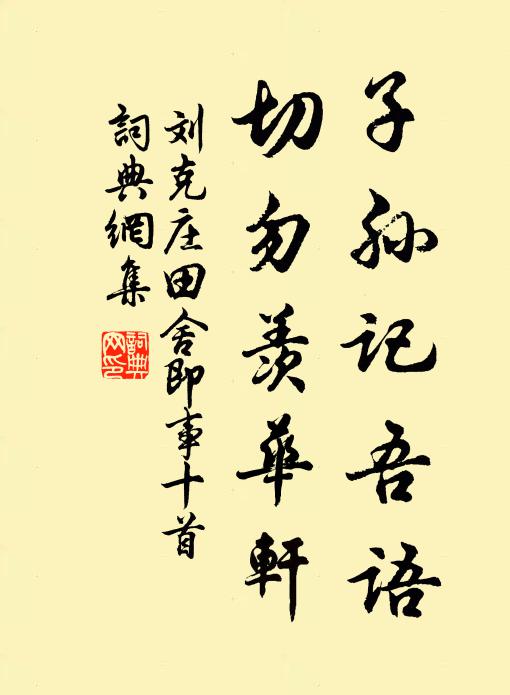 子孙记吾语
切勿羡华軒
刘克庄田舍即事十首
詞典網集
詞典
网印